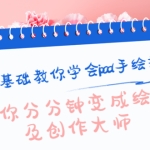 基础教你学会ipad手绘
你分分钟变成绘
及创作大师